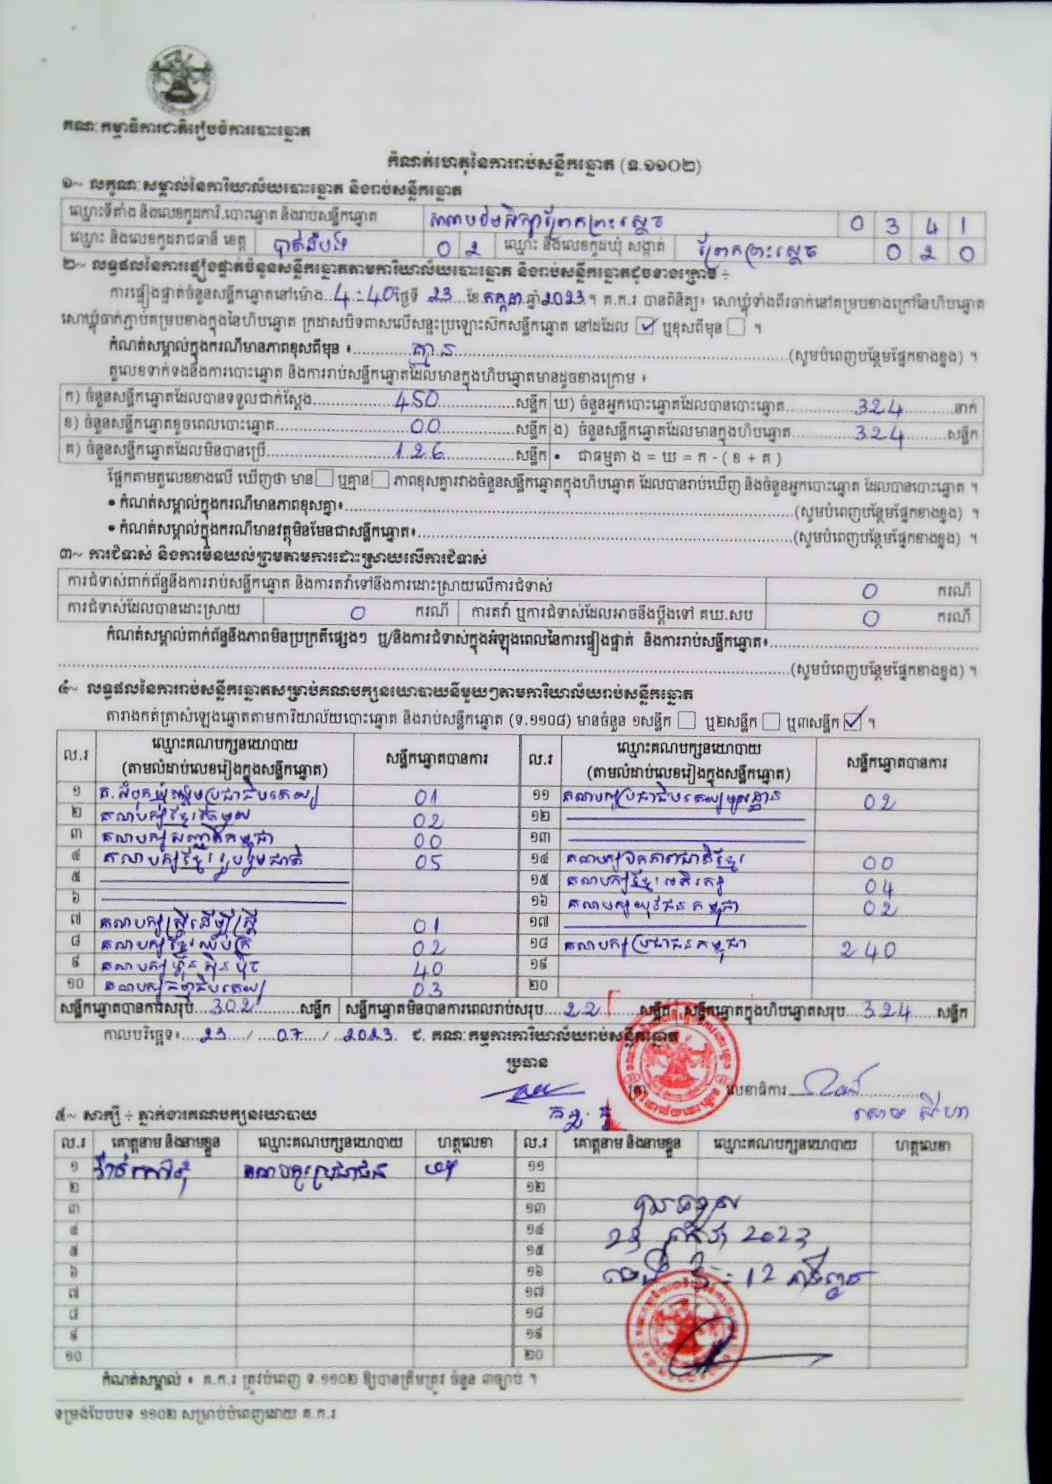 គណៈកម្មាធិការជាតិរៀបចំការបោះឆ្នោត
កំណត់ហេតុនៃការរាប់សន្លឹកឆ្នោត (ទ.១១០២)
១~ លក្ខណៈសម្គាល់នៃការិយាល័យបោះឆ្នោត និងរាប់សន្លឹកឆ្នោត
ឈ្មោះទីតាំង និងលេខកូដការិ.បោះឆ្នោត និងរាប់សន្លឹកឆ្នោត សាលាបឋមសិក្សាព្រែកព្រះស្តេច 0 3 4 1
ឈ្មោះ និងលេខកូដរាជធានី ខេត្ត បាត់ដំបង 0 2 ឈ្មោះ និងលេខកូដឃុំ សង្កាត់ ព្រែកព្រះស្តេច 0 2 0
២~ លទ្ធផលនៃការផ្ទៀងផ្ទាត់ចំនួនសន្លឹកឆ្នោតតាមការិយាល័យបោះឆ្នោត និងរាប់សន្លឹកឆ្នោតដូចខាងក្រោម ÷
ការផ្ទៀងផ្ទាត់ចំនួនសន្លឹកឆ្នោតនៅម៉ោង 4:40 ថ្ងៃទី 23 ខែ កក្កដា ឆ្នាំ 2023 ។ គ.ក.រ បានពិនិត្យ៖ សោឃ្លុំទាំងពីរចាក់នៅគម្របខាងក្រៅនៃហិបឆ្នោត
សោឃ្លុំចាក់ភ្ជាប់គម្របខាងក្នុងនៃហិបឆ្នោត ក្រដាសបិទពាសលើសន្ទះប្រឡោះស៊កសន្លឹកឆ្នោត នៅដដែល ☑ ឬខុសពីមុន ☐ ។
កំណត់សម្គាល់ក្នុងករណីមានភាពខុសពីមុន ៖ គ្មាន (សូមបំពេញបន្ថែមផ្នែកខាងខ្នង) ។
តួលេខទាក់ទងនឹងការបោះឆ្នោត និងការរាប់សន្លឹកឆ្នោតដែលមានក្នុងហិបឆ្នោតមានដូចខាងក្រោម ៖
ក) ចំនួនសន្លឹកឆ្នោតដែលបានទទួលជាក់ស្តែង 450 សន្លឹក ឃ) ចំនួនអ្នកបោះឆ្នោតដែលបានបោះឆ្នោត 324 នាក់
ខ) ចំនួនសន្លឹកឆ្នោតខូចពេលបោះឆ្នោត 00 សន្លឹក ង) ចំនួនសន្លឹកឆ្នោតដែលមានក្នុងហិបឆ្នោត 324 សន្លឹក
គ) ចំនួនសន្លឹកឆ្នោតដែលមិនបានប្រើ 126 សន្លឹក • ជាធម្មតា ង = ឃ = ក - ( ខ + គ )
ផ្អែកតាមតួលេខខាងលើ ឃើញថា មាន ☐ ឬគ្មាន ☐ ភាពខុសគ្នារវាងចំនួនសន្លឹកឆ្នោតក្នុងហិបឆ្នោត ដែលបានរាប់ឃើញ និងចំនួនអ្នកបោះឆ្នោត ដែលបានបោះឆ្នោត ។
• កំណត់សម្គាល់ក្នុងករណីមានភាពខុសគ្នា៖ (សូមបំពេញបន្ថែមផ្នែកខាងខ្នង) ។
• កំណត់សម្គាល់ក្នុងករណីមានវត្ថុមិនមែនជាសន្លឹកឆ្នោត៖ (សូមបំពេញបន្ថែមផ្នែកខាងខ្នង) ។
៣~ ការជំទាស់ និងការមិនយល់ព្រមតាមការដោះស្រាយលើការជំទាស់
ការជំទាស់ពាក់ព័ន្ធនឹងការរាប់សន្លឹកឆ្នោត និងការតវ៉ាទៅនឹងការដោះស្រាយលើការជំទាស់ 0 ករណី
ការជំទាស់ដែលបានដោះស្រាយ 0 ករណី ការតវ៉ា ឬការជំទាស់ដែលអាចនឹងប្តឹងទៅ គឃ.សប 0 ករណី
កំណត់សម្គាល់ពាក់ព័ន្ធនឹងភាពមិនប្រក្រតីផ្សេងៗ ឬ/និងការជំទាស់ក្នុងអំឡុងពេលនៃការផ្ទៀងផ្ទាត់ និងការរាប់សន្លឹកឆ្នោត៖
(សូមបំពេញបន្ថែមផ្នែកខាងខ្នង) ។
៤~ លទ្ធផលនៃការរាប់សន្លឹកឆ្នោតសម្រាប់គណបក្សនយោបាយនីមួយៗតាមការិយាល័យរាប់សន្លឹកឆ្នោត
តារាងកត់ត្រាសំឡេងឆ្នោតតាមការិយាល័យបោះឆ្នោត និងរាប់សន្លឹកឆ្នោត (ទ.១១០៨) មានចំនួន ១សន្លឹក ☐ ឬ២សន្លឹក ☐ ឬ៣សន្លឹក ☑ ។
ល.រ ឈ្មោះគណបក្សនយោបាយ (តាមលំដាប់លេខរៀងក្នុងសន្លឹកឆ្នោត) សន្លឹកឆ្នោតបានការ ល.រ ឈ្មោះគណបក្សនយោបាយ (តាមលំដាប់លេខរៀងក្នុងសន្លឹកឆ្នោត) សន្លឹកឆ្នោតបានការ
១ គ.សំបុកឃ្មុំសង្គមប្រជាធិបតេយ្យ 01 ១១ គណបក្សប្រជាធិបតេយ្យមូលដ្ឋាន 02
២ គណបក្សខ្មែរតែមួយ 02 ១២
៣ គណបក្សសញ្ជាតិកម្ពុជា 00 ១៣
៤ គណបក្សខ្មែររួបរួមជាតិ 05 ១៤ គណបក្សឯកភាពជាតិខ្មែរ 00
៥ ១៥ គណបក្សខ្មែរអភិរក្ស 04
៦ ១៦ គណបក្សយុវជនកម្ពុជា 02
៧ គណបក្សស្ត្រីដើម្បីស្ត្រី 01 ១៧
៨ គណបក្សខ្មែរឈប់ក្រ 02 ១៨ គណបក្សប្រជាជនកម្ពុជា 240
៩ គណបក្សហ្វ៊ុនស៊ិនប៉ិច 40 ១៩
១០ គណបក្សធម្មាធិបតេយ្យ 03 ២០
សន្លឹកឆ្នោតបានការសរុប 302 សន្លឹក សន្លឹកឆ្នោតមិនបានការពេលរាប់សរុប 22 សន្លឹក សន្លឹកឆ្នោតក្នុងហិបឆ្នោតសរុប 324 សន្លឹក
កាលបរិច្ឆេទ៖ 23 / 07 / 2023 ជ. គណៈកម្មការការិយាល័យរាប់សន្លឹកឆ្នោត
ប្រធាន
លេខាធិការ
៥~ សាក្សី ÷ ភ្នាក់ងារគណបក្សនយោបាយ
ល.រ គោត្តនាម និងនាមខ្លួន ឈ្មោះគណបក្សនយោបាយ ហត្ថលេខា ល.រ គោត្តនាម និងនាមខ្លួន ឈ្មោះគណបក្សនយោបាយ ហត្ថលេខា
១ គណបក្សប្រជាជន ១១
២ ១២
៣ ១៣ បានទទួល
៤ ១៤ 23 កក្កដា 2023
៥ ១៥
៦ ១៦ ម៉ោង : 12 នាទី
៧ ១៧
៨ ១៨
៩ ១៩
១០ ២០
កំណត់សម្គាល់ ៖ គ.ក.រ ត្រូវបំពេញ ទ.១១០២ ឱ្យបានត្រឹមត្រូវ ចំនួន ៣ច្បាប់ ។
ទម្រង់បែបបទ ១១០២ សម្រាប់បំពេញដោយ គ.ក.រ